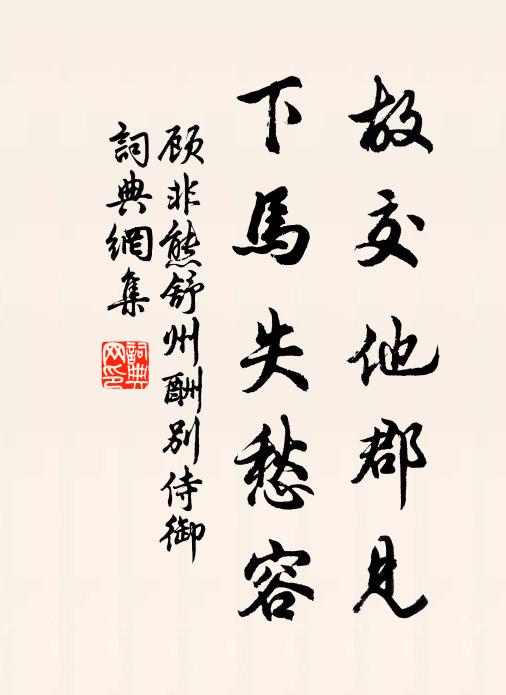 故交他郡見
下馬失愁容
顾非熊舒州酬别侍御
詞典網集
詞典网印